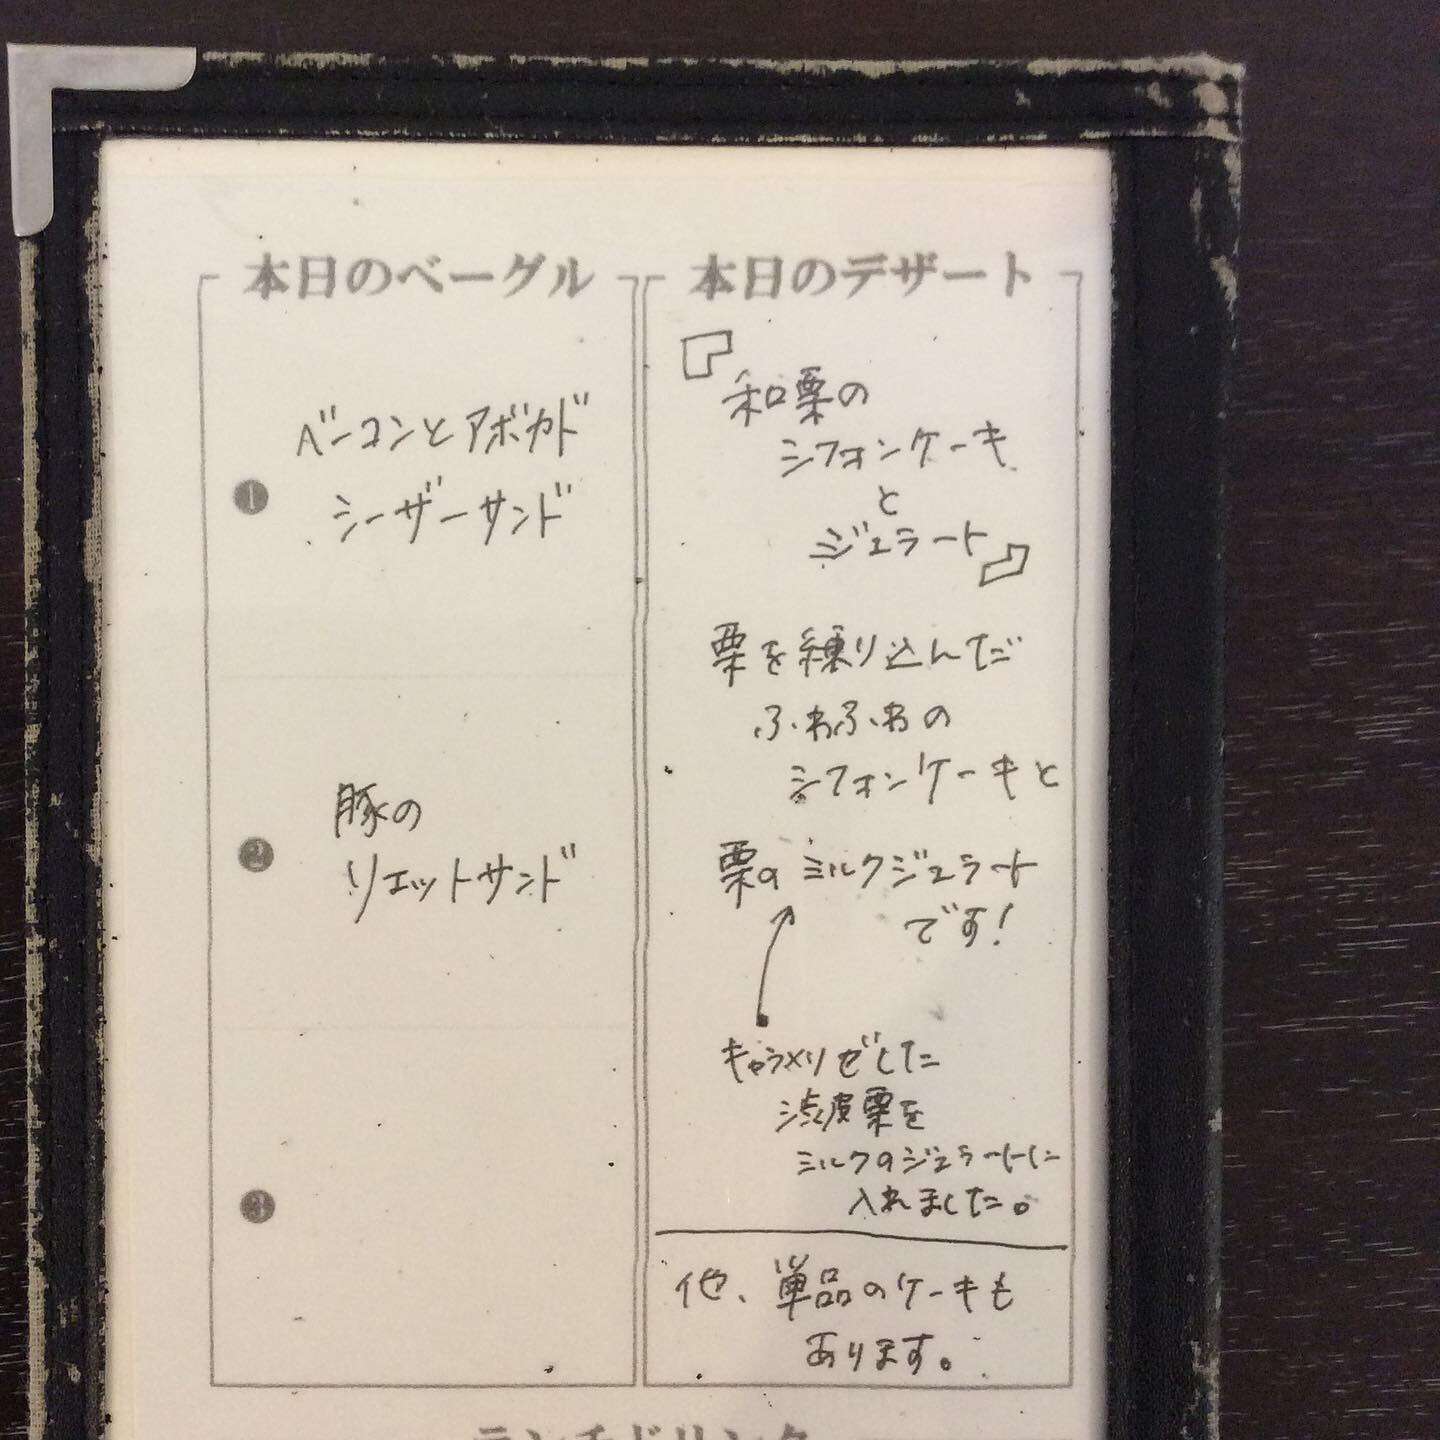 本日のベーグル
❶
ベーコンとアボカド
シーザーサンド
❷
豚の
リエットサンド
❸
本日のデザート
『和栗の
シフォンケーキ
と
ジェラート』
栗を練り込んだ
ふわふわの
シフォンケーキと
栗のミルクジェラート
です!
キャラメリゼした
渋皮栗を
ミルクのジェラートに
入れました。
他、単品のケーキも
あります。
ランチドリンク